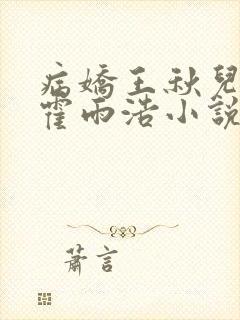 病嬌王秋兒
霍雨浩小說
蕭言